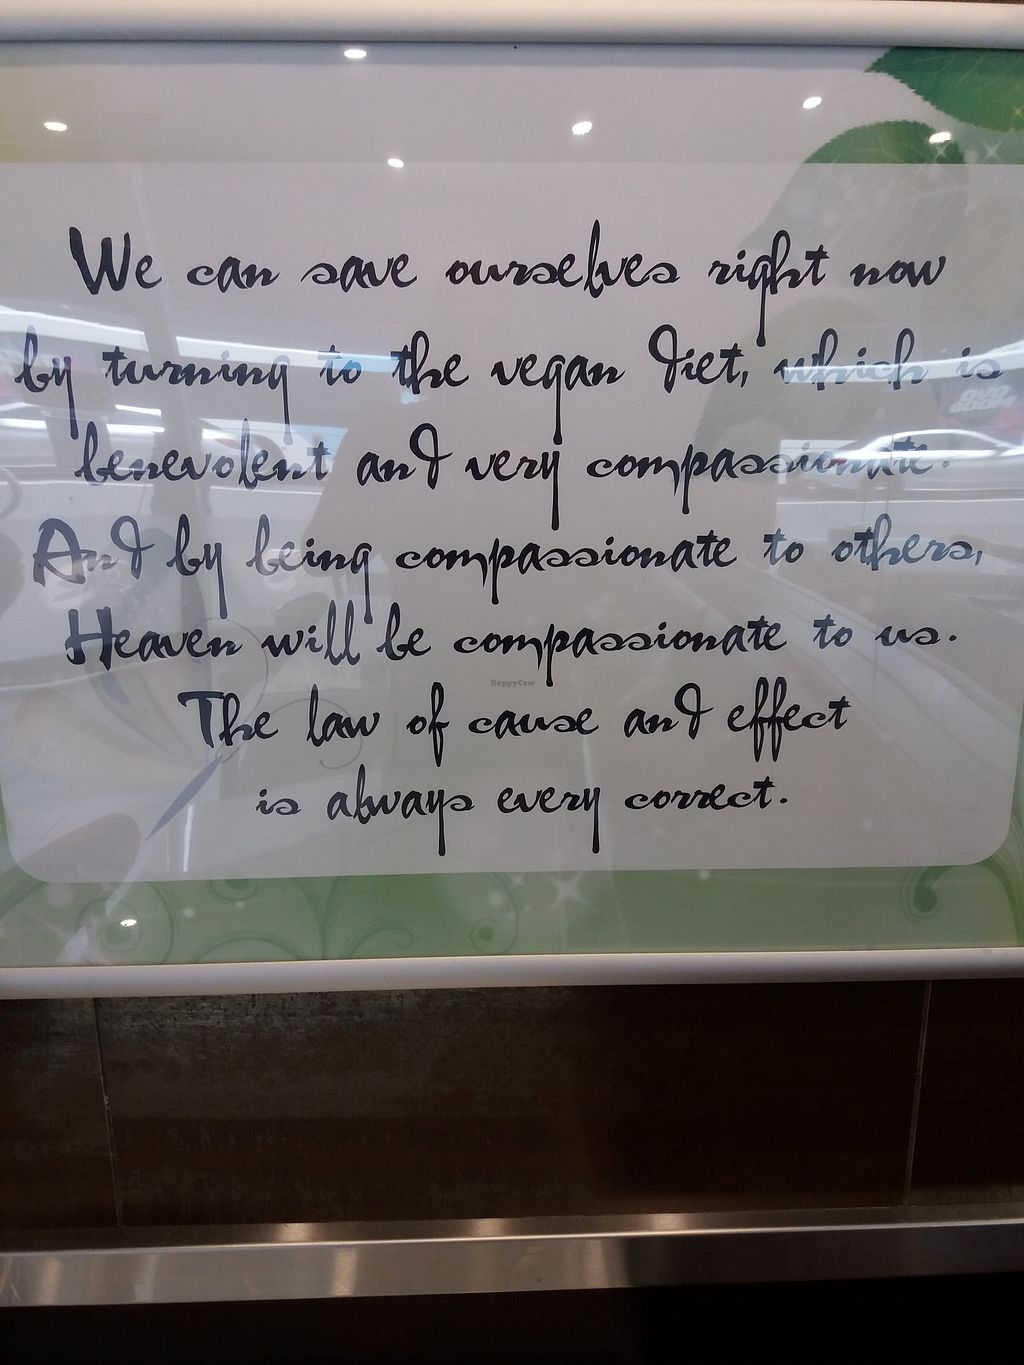 We can save ourselves right now
by turning to the vegan diet, which is
benevolent and very compassionate.
And by being compassionate to others,
Heaven will be compassionate to us.
HappyCow
The law of cause and effect
is always every correct.